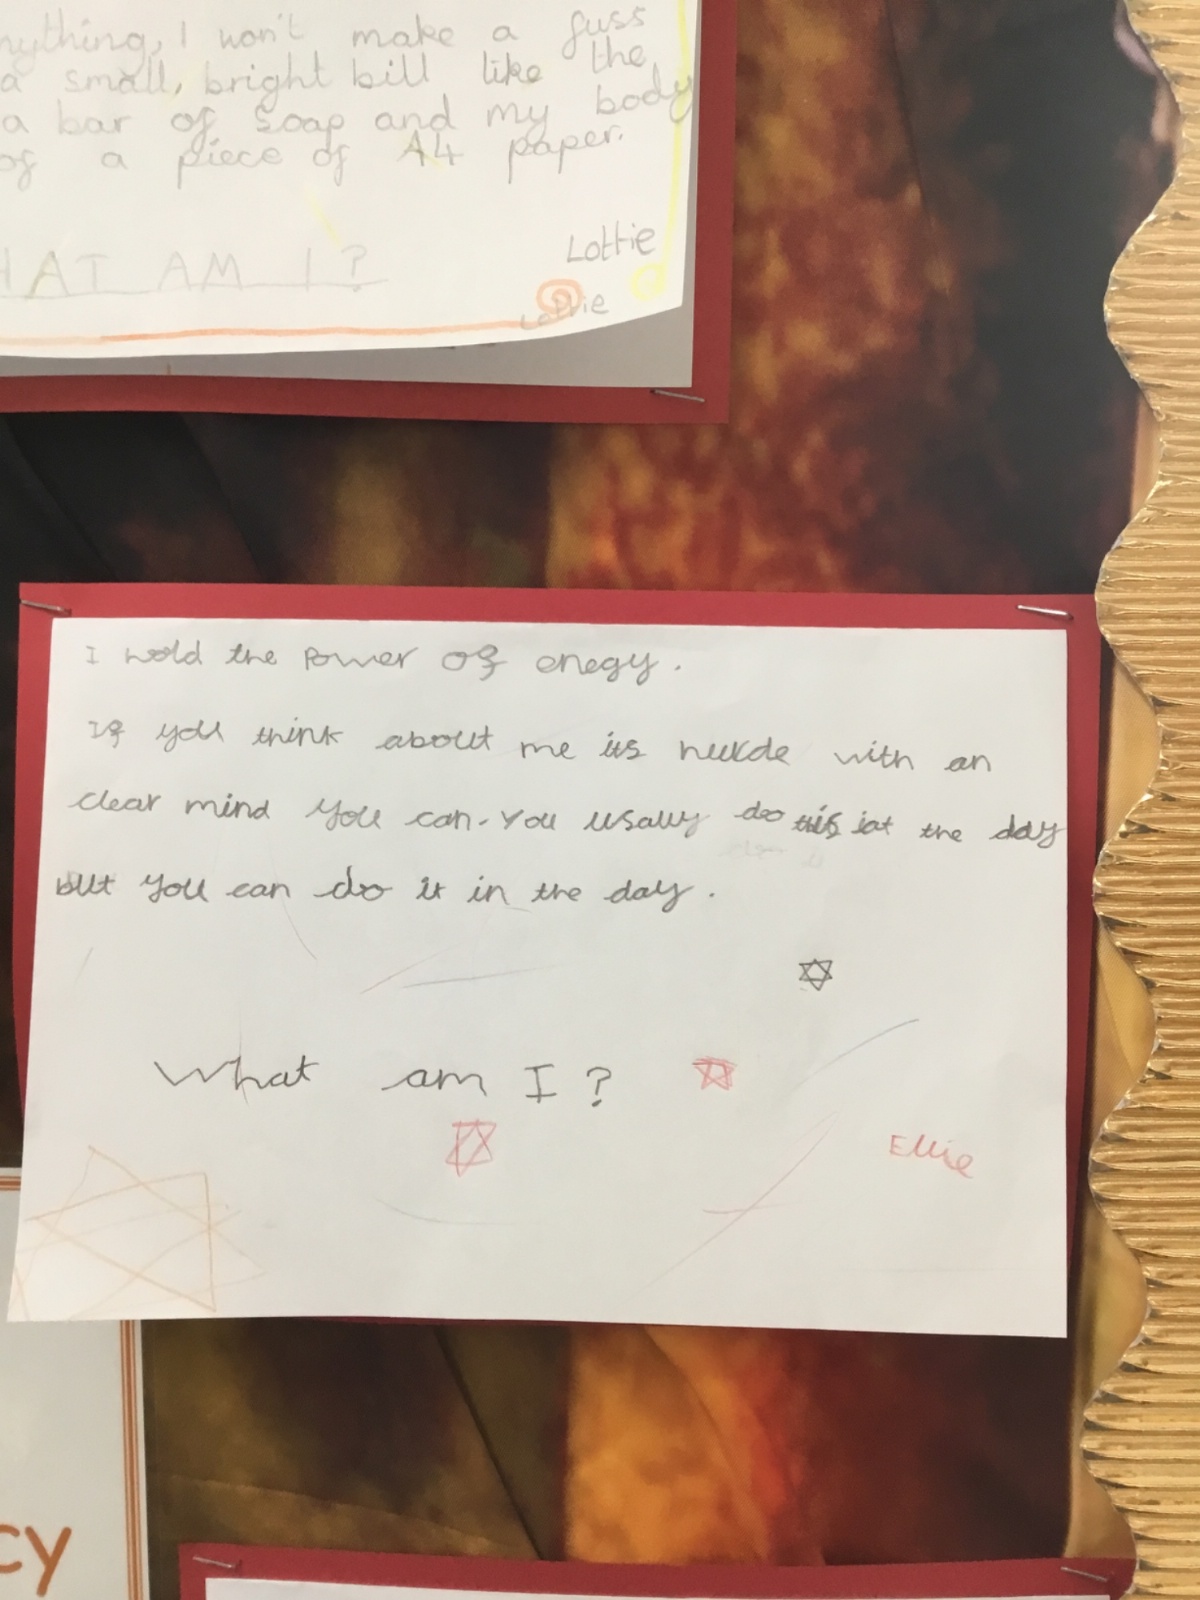 nything, I won't make a fuss
a small, bright bill like the
a bar of soap and my body
of a piece of A4 paper.
HAT AM I?
Lottie
Lottie
I hold the Power of enegy.
If you think about me its
with an
clear mind you can. You usally do this at the day
but you can do it in the day.
What am I?
Ellie
cy